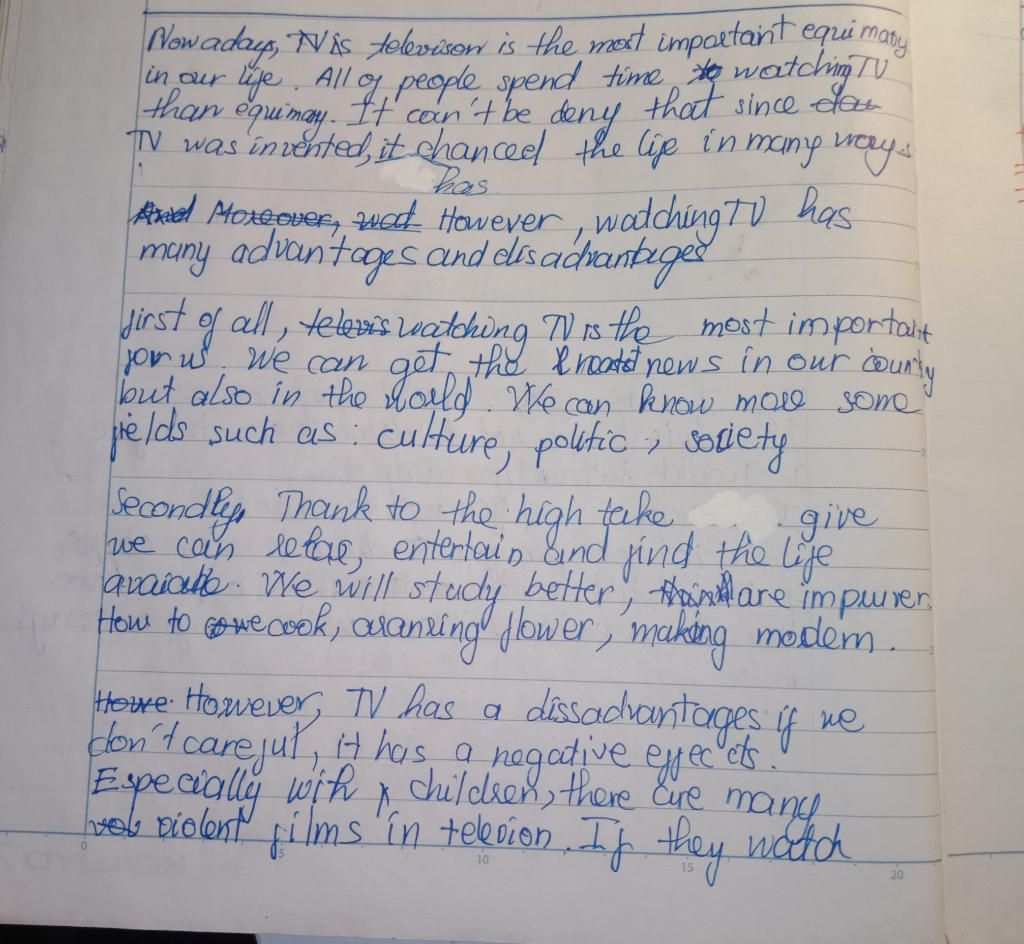 Nowadays, TV is televison is the most impoetant equimany
in our life. All of people spend time to watching TV
than equimany. It can't be deny that since
TV was invented, it chanced the life in many ways
has
And Moreover, wat However, watching TV has
many advantages and disadvantages
first of all, televis watching TV is the most important
for us. We can get the news in our county
but also in the world. We can know more some
fields such as : culture, politic , society
Secondly, Thank to the high take give
we can relax, entertain and find the life
We will study better, are
How to cook, aranring flower, making modern.
Howe However, TV has a dissadvantages if we
don't careful, it has a negative effects.
Especially with children, there are many
violent films in televion. If they watch
0 5 10 15 20